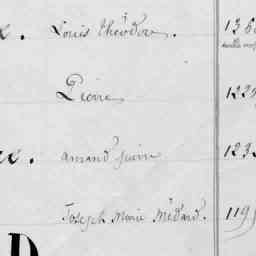 e. Louis théodore. 136
Pierre 122
re. amand Pierre 123
Joseph Marie Médard. 119
D